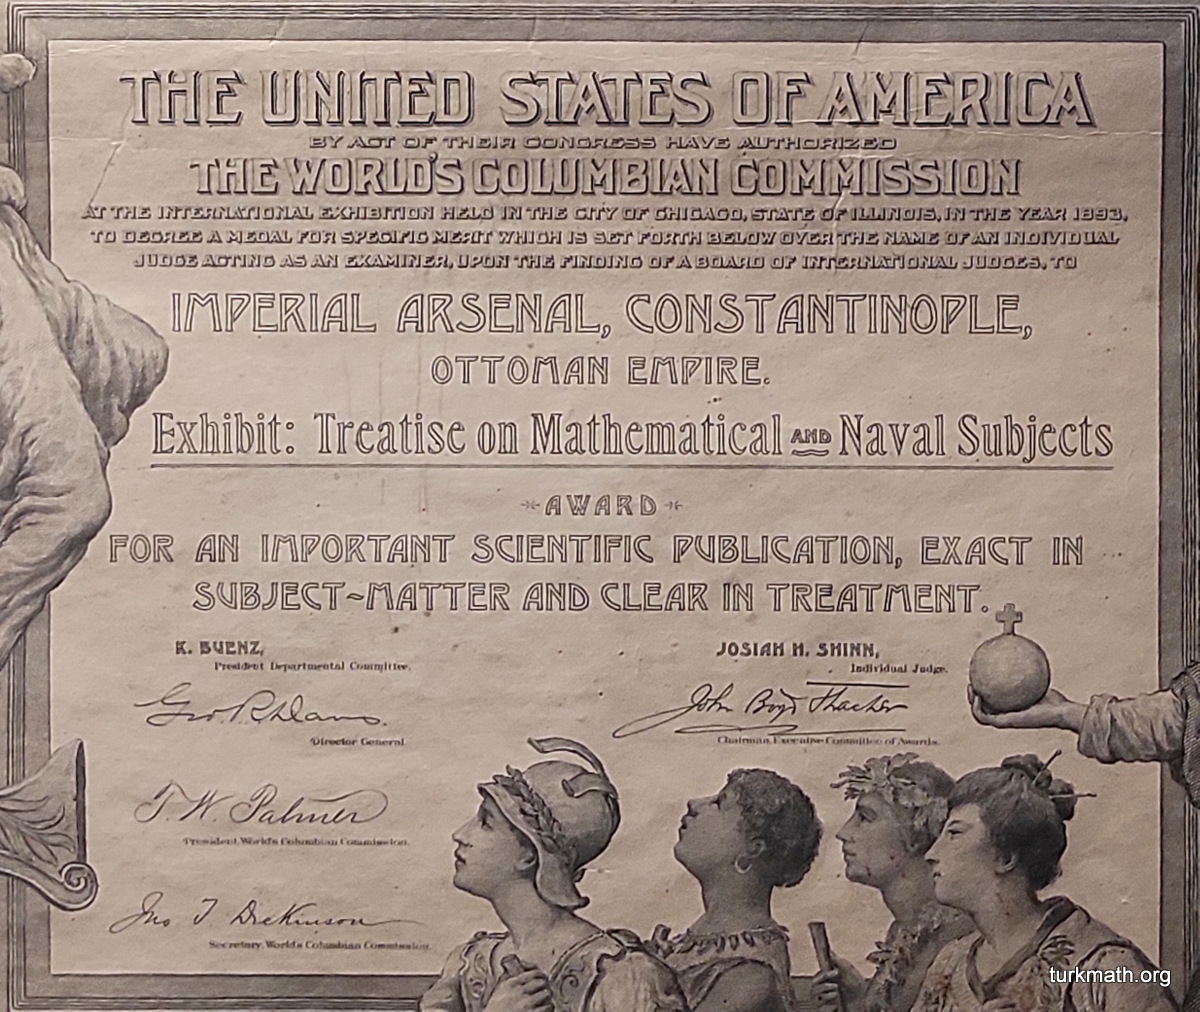 THE UNITED STATES OF AMERICA
BY ACT OF THEIR CONGRESS HAVE AUTHORIZED
THE WORLD'S COLUMBIAN COMMISSION
AT THE INTERNATIONAL EXHIBITION HELD IN THE CITY OF CHICAGO, STATE OF ILLINOIS, IN THE YEAR 1893,
TO DECREE A MEDAL FOR SPECIFIC MERIT WHICH IS SET FORTH BELOW OVER THE NAME OF AN INDIVIDUAL
JUDGE ACTING AS AN EXAMINER, UPON THE FINDING OF A BOARD OF INTERNATIONAL JUDGES, TO
IMPERIAL ARSENAL, CONSTANTINOPLE,
OTTOMAN EMPIRE.
Exhibit: Treatise on Mathematical AND Naval Subjects
AWARD
FOR AN IMPORTANT SCIENTIFIC PUBLICATION, EXACT IN
SUBJECT-MATTER AND CLEAR IN TREATMENT.
K. BUENZ,
President Departmental Committee.
JOSIAH H. SHINN,
Individual Judge.
Geo. R. Davis.
Director General.
John Boyd Thacher
Chairman, Executive Committee of Awards.
T. W. Palmer
President, World's Columbian Commission.
Jno T Dickinson
Secretary, World's Columbian Commission.
turkmath.org